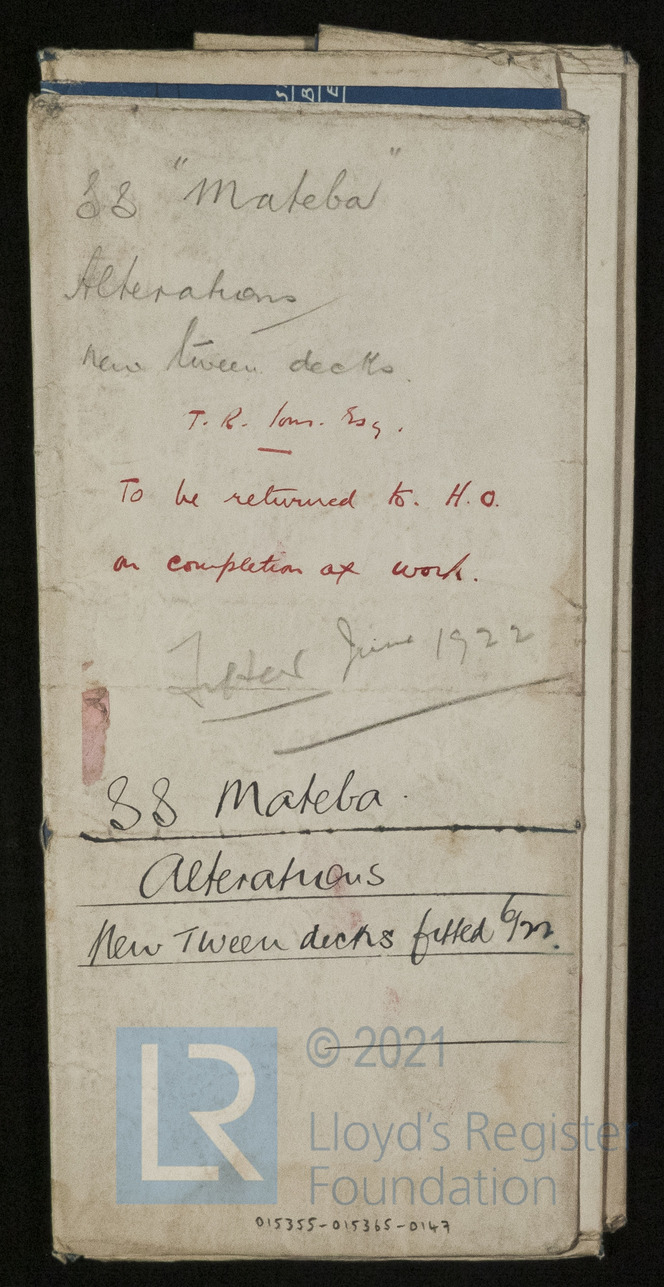 SS "Mateba"
Alterations
New tween decks.
T. R. Esq.
To be returned to H.O.
on completion of work.
Fitted June 1922
SS Mateba.
Alterations
New Tween decks fitted 6/22.
© 2021
LR
Lloyd's Register
Foundation
015355-015365-0147